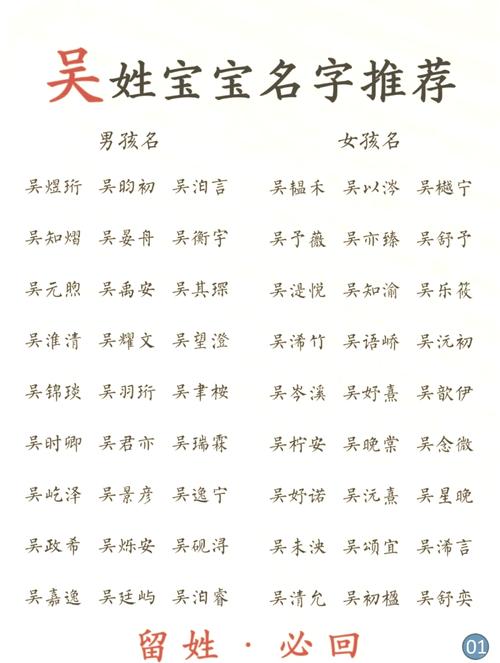 吴姓宝宝名字推荐
男孩名 女孩名
吴煜珩 吴昀初 吴泊言 吴韫禾 吴以涔 吴樾宁
吴知熠 吴晏舟 吴衡宇 吴予薇 吴亦臻 吴舒予
吴元煦 吴禹安 吴其琛 吴湜悦 吴知渝 吴乐筱
吴淮清 吴耀文 吴望澄 吴浠竹 吴语峤 吴沅初
吴锦琰 吴羽珩 吴聿桉 吴岑溪 吴妤熹 吴歆伊
吴时卿 吴君亦 吴瑞霖 吴柠安 吴晚棠 吴念微
吴屹泽 吴景彦 吴逸宁 吴妤诺 吴沅熹 吴星晚
吴政希 吴烁安 吴砚浔 吴未泱 吴颂宜 吴浠言
吴嘉逸 吴廷屿 吴泊睿 吴清允 吴初楹 吴舒奕
留姓·必回
01